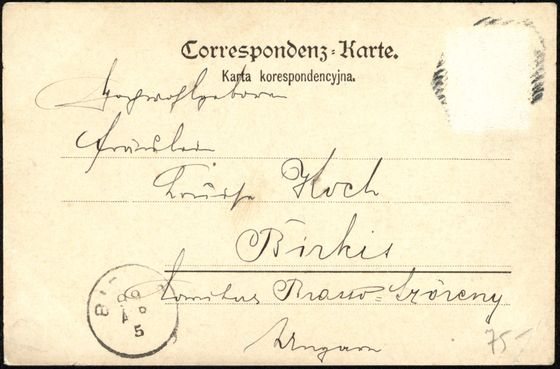 Correspondenz-Karte.
Karta korespondencyjna.
Hochwohlgeboren
Fräulein
Louise Koch
Birkis
Komitas Krasso-Szöreny
Ungarn
75-